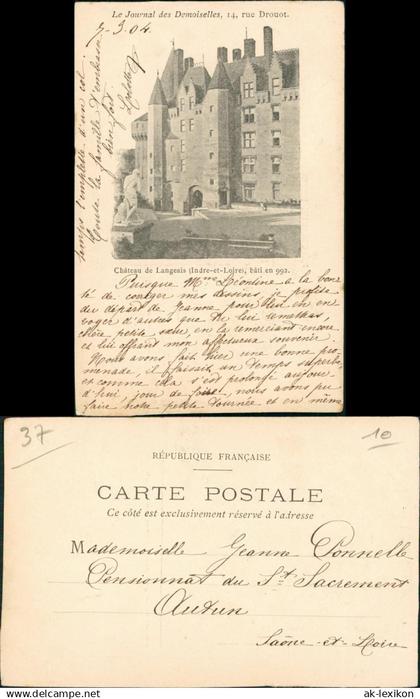 Le Journal des Demoiselles, 14, rue Drouot.
7-3.04
Château de Langeais (Indre-et-Loire), bâti en 992.
Puisque Mme Léontine a la bon
té de corriger mes dessins je profite
du départ de Jeanne pour en en
voyer d'autres que tu lui remettras,
chère petite sœur, en le remerciant encore
et lui offrant mon affectueux souvenir.
Nous avons fait hier une bonne pro
menade, il faisait un temps superbe
et comme cela s'est prolongé aujour
d'hui, jour de foire, nous avons pu
faire notre petite tournée et en même
temps l'emplette d'un col.
Toute la famille t'embrasse
bien fort
37
10
RÉPUBLIQUE FRANÇAISE
CARTE POSTALE
Ce côté est exclusivement réservé à l'adresse
Mademoiselle Jeanne Ponnelle
Pensionnat du St Sacrement
Autun
Saône-et-Loire
Delcampe.net
ak-lexikon